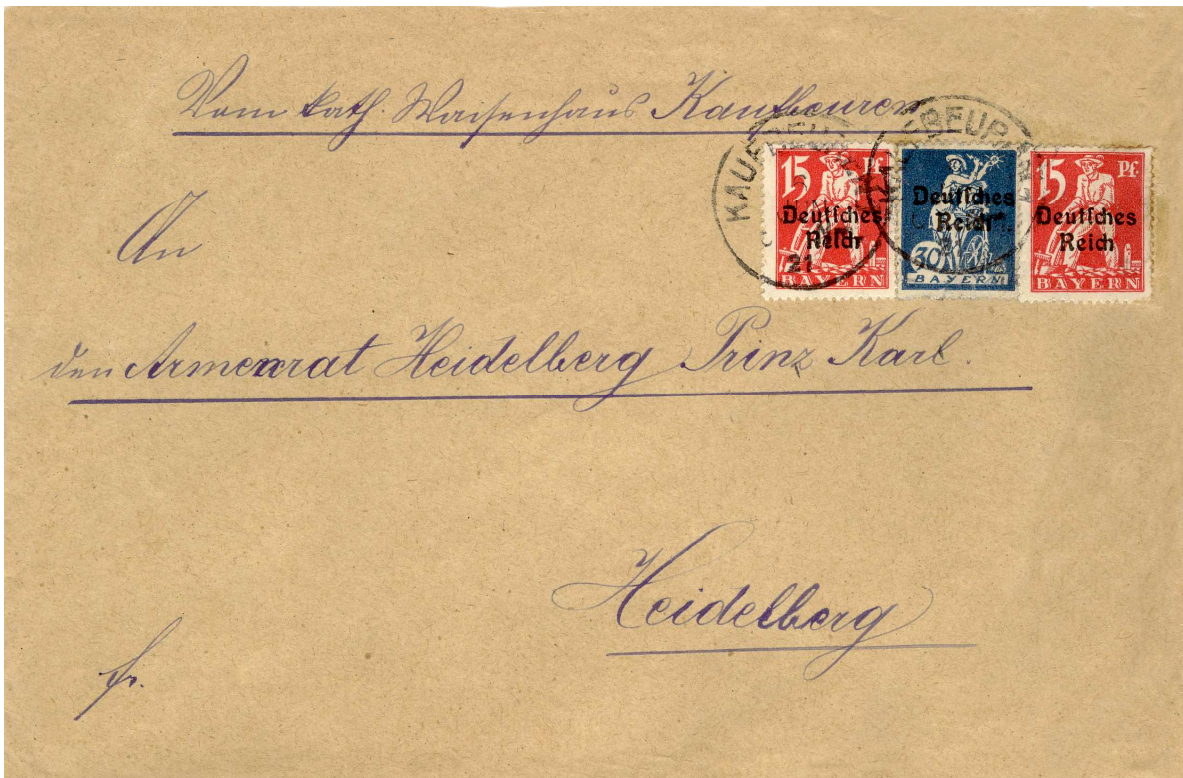 Vom kath. Waisenhaus Kaufbeuren
KAUFBEUREN
21
KAUFBEUREN
21
15 Pf.
Deutsches
Reich
BAYERN
Deutsches
Reich
30
BAYERN
15 Pf.
Deutsches
Reich
BAYERN
An
den Armenrat Heidelberg Prinz Karl.
Heidelberg
fr.